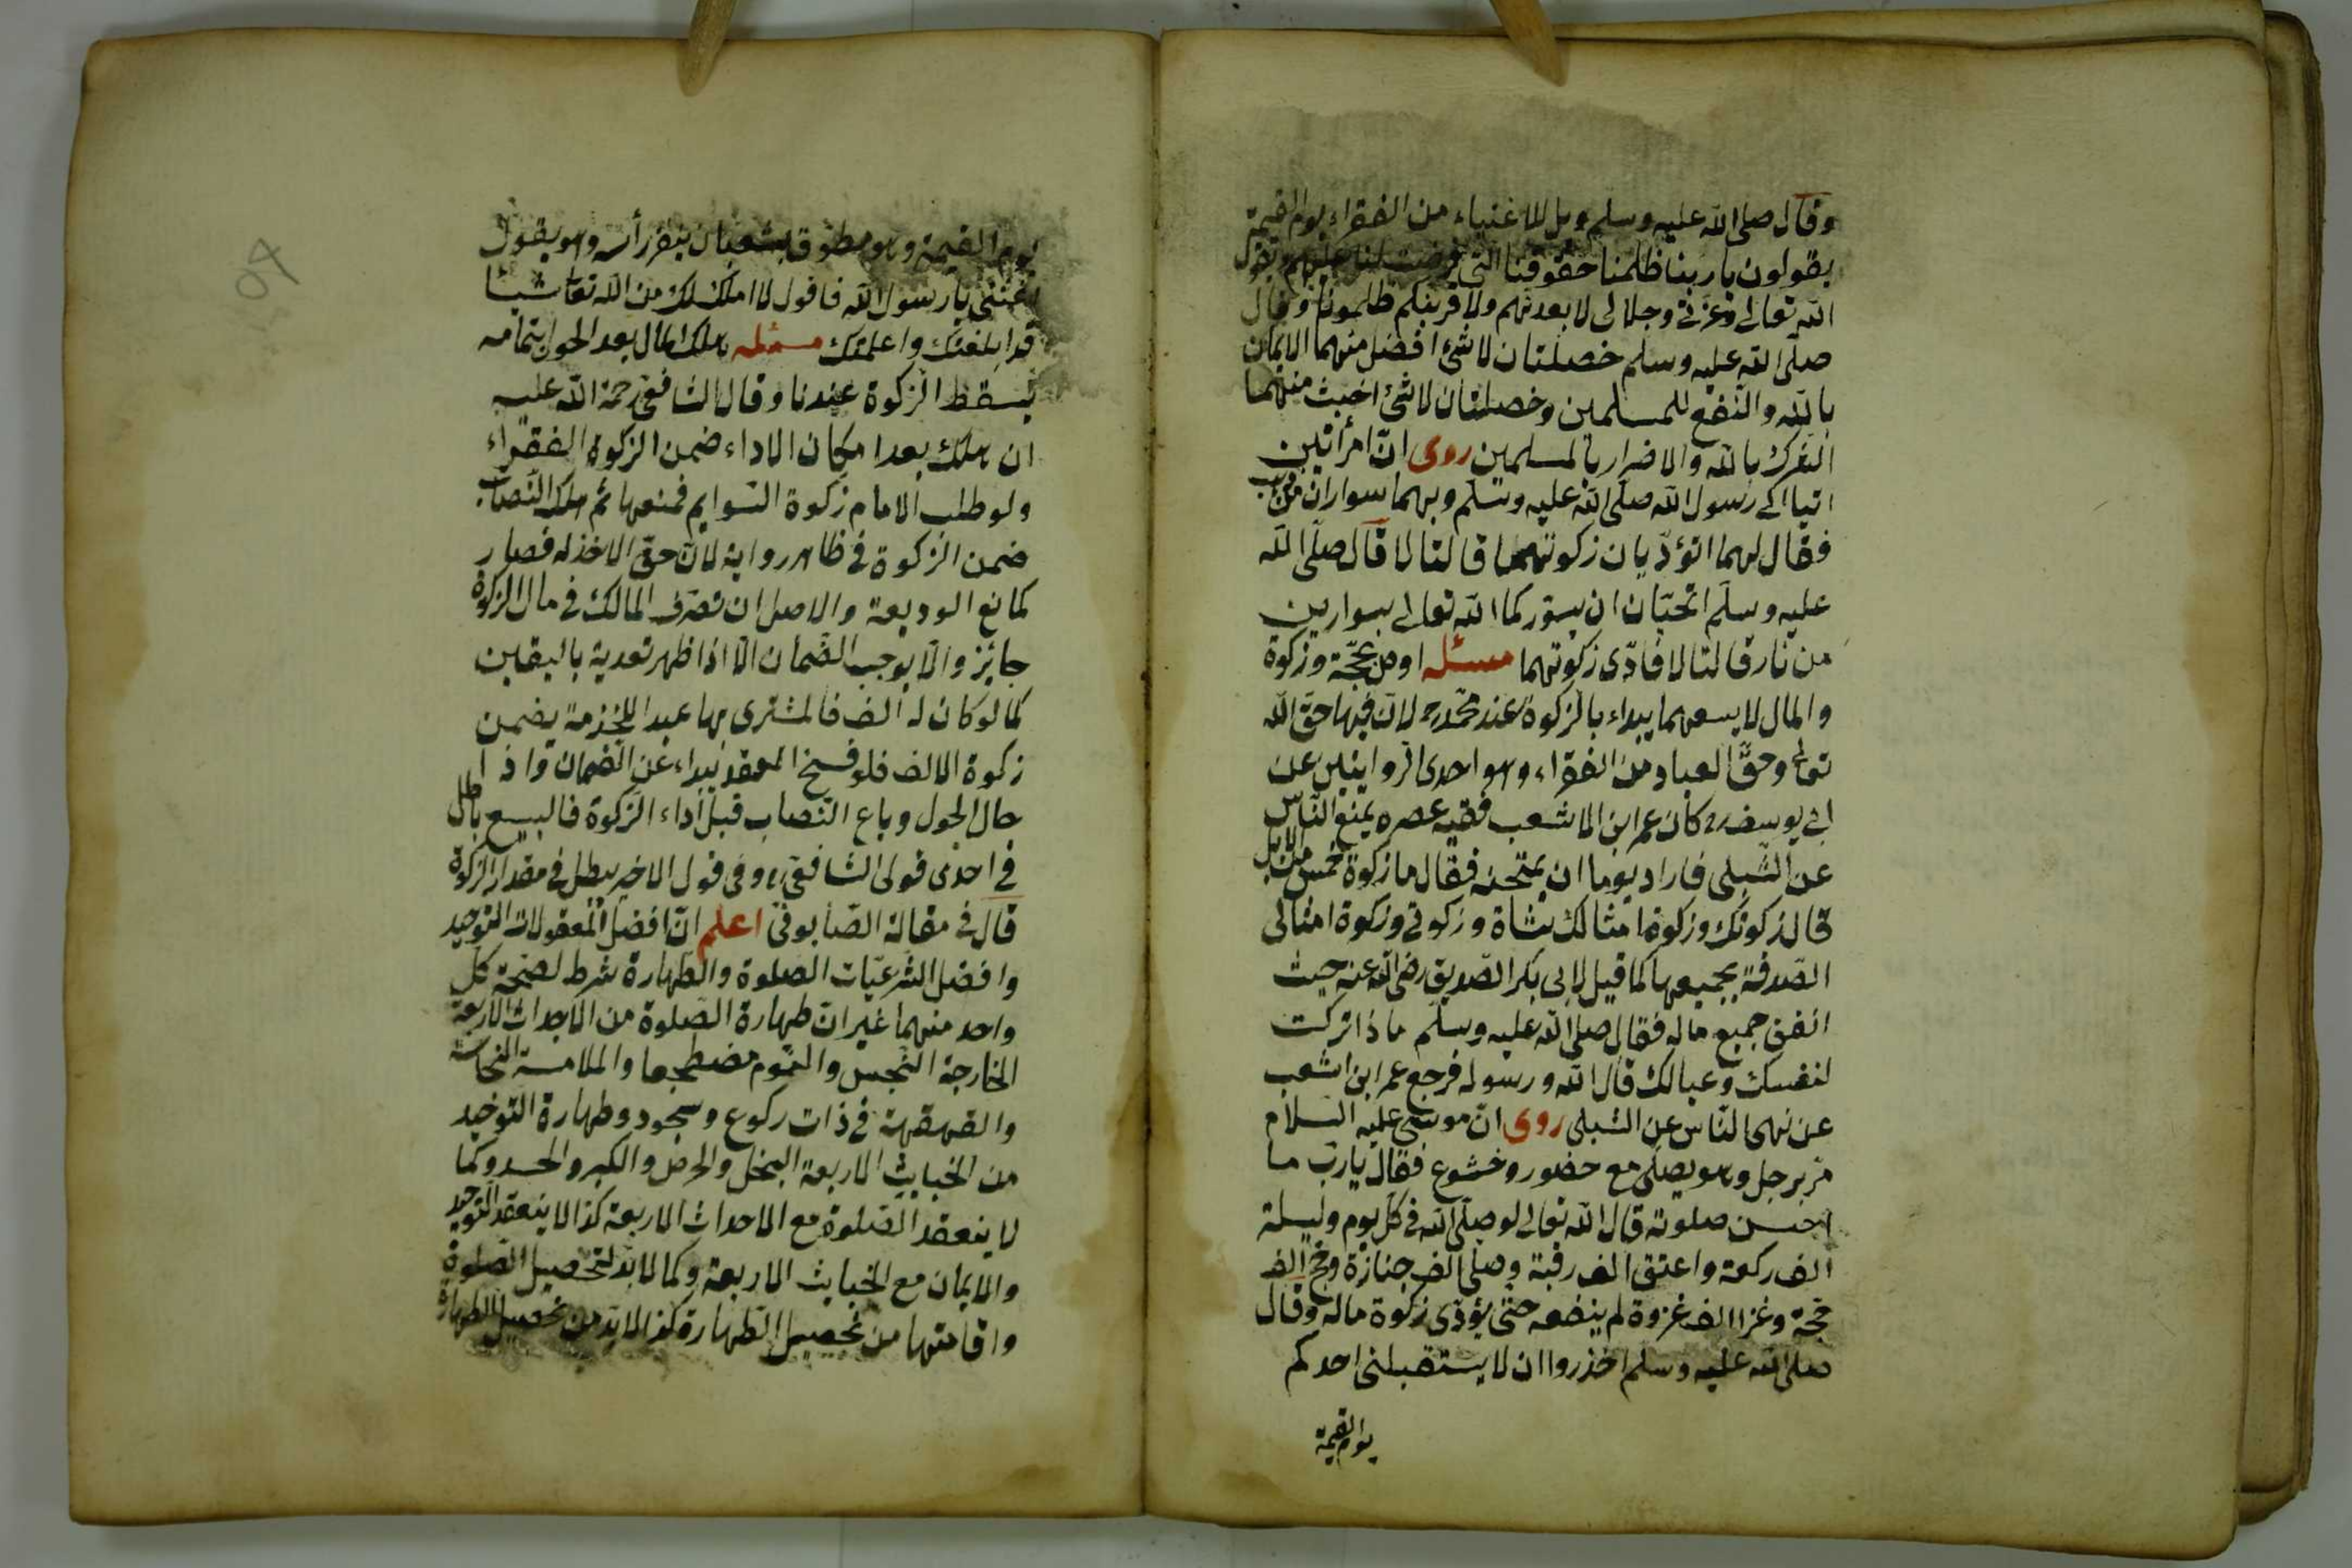 وقال صلى الله عليه وسلم ويل للاغنياء من الفقراء يوم القيمة
يقولون يا ربنا ظلمنا حقوقنا التى فرضت لنا عليهم يقول
الله تعالى وعزتى وجلالى لابعدنهم ولاقربنكم ظلمونا وقال
صلى الله عليه وسلم خصلتان لا شئ افضل منهما الايمان
بالله والنفع للمسلمين وخصلتان لا شئ اخبث منهما
الشرك بالله والاضرار بالمسلمين روى ان امرأتين
اتيا الى رسول الله صلى الله عليه وسلم وبهما سواران من ذهب
فقال لهما اتؤديان زكوتهما قالتا لا قال صلى الله
عليه وسلم اتحبان ان يسوركما الله تعالى بسوارين
من نار قالتا لا فادى زكوتهما مسئله اوصى بحجة وزكوة
والمال لا يسعهما يبداء بالزكوة عند محمد رح لان فيها حق الله
تعالى وحق العباد من الفقراء وهو احدى الروايتين عن
ابى يوسف رح كان عمر ابن الاشعب فقيه عصره يمنع الناس
عن الشبلى فاراد يوما ان يمتحنه فقال ما زكوة خمس من الابل
قال زكوتك وزكوة امثالك شاة وزكوتى وزكوة امثالى
الصدقة بجميعها كما قيل لابى بكر الصديق رضى الله عنه حيث
انفق جميع ماله فقال صلى الله عليه وسلم ماذا تركت
لنفسك وعيالك قال الله ورسوله فرجع عمر ابن اشعب
عن نهى الناس عن الشبلى روى ان موسى عليه السلام
مر برجل وهو يصلى مع حضور وخشوع فقال يا رب ما
احسن صلوته قال الله تعالى لو صلى الله فى كل يوم وليلة
الف ركعة واعتق الف رقبة وصلى الف جنازة وحج الف
حجة وغزا الف غزوة لم ينفعه حتى يؤدى زكوة ماله وقال
صلى الله عليه وسلم احذروا ان لا يستقبلنى احدكم
يوم القيمة
يوم القيمة وهو مطوق بشعبان ينقر رأسه وهو يقول
اغثنى يا رسول الله فاقول لا املك لك من الله تعالى شيئا
قد ابلغتك واعلمتك مسئله هلك المال بعد الحول بتمامه
يسقط الزكوة عندنا وقال الشافعى رحمة الله عليه
ان هلك بعد امكان الاداء ضمن الزكوة الفقراء
ولو طلب الامام زكوة السوايم فمنعها ثم هلك النصاب
ضمن الزكوة فى ظاهر رواية لان حق الاخذ له فصار
كمانع الوديعة والاصل ان تصرف المالك فى مال الزكوة
جايز والا يوجب الضمان الا اذا ظهر تعديه باليقين
كما لو كان له الف فالمشترى بها عبدا للخدمة يضمن
زكوة الالف فلو فسخ العقد يبداء عن الضمان واذا
حال الحول وباع النصاب قبل اداء الزكوة فالبيع باطل
فى احدى قولى الشافعى رح وفى قول الاخير يبطل فى مقدار الزكوة
قال فى مقالة الصابونى اعلم ان افضل المعقولات التوحيد
وافضل الشرعيات الصلوة والطهارة شرط لصحة كل
واحد منهما غير ان طهارة الصلوة من الاحداث الاربعة
الخارجة النجس والنوم مضطجعا والملامسة الفحاشة
والقهقهة فى ذات ركوع وسجود وطهارة التوحيد
من الخبايث الاربعة البخل والحرص والكبر والحسد وكما
لا ينعقد الصلوة مع الاحداث الاربعة كذا لا ينعقد التوحيد
والايمان مع الخبايث الاربعة وكما لا بد لتحصيل الصلوة
واقامتها من تحصيل الطهارة كذا لا بد من تحصيل الطهارة